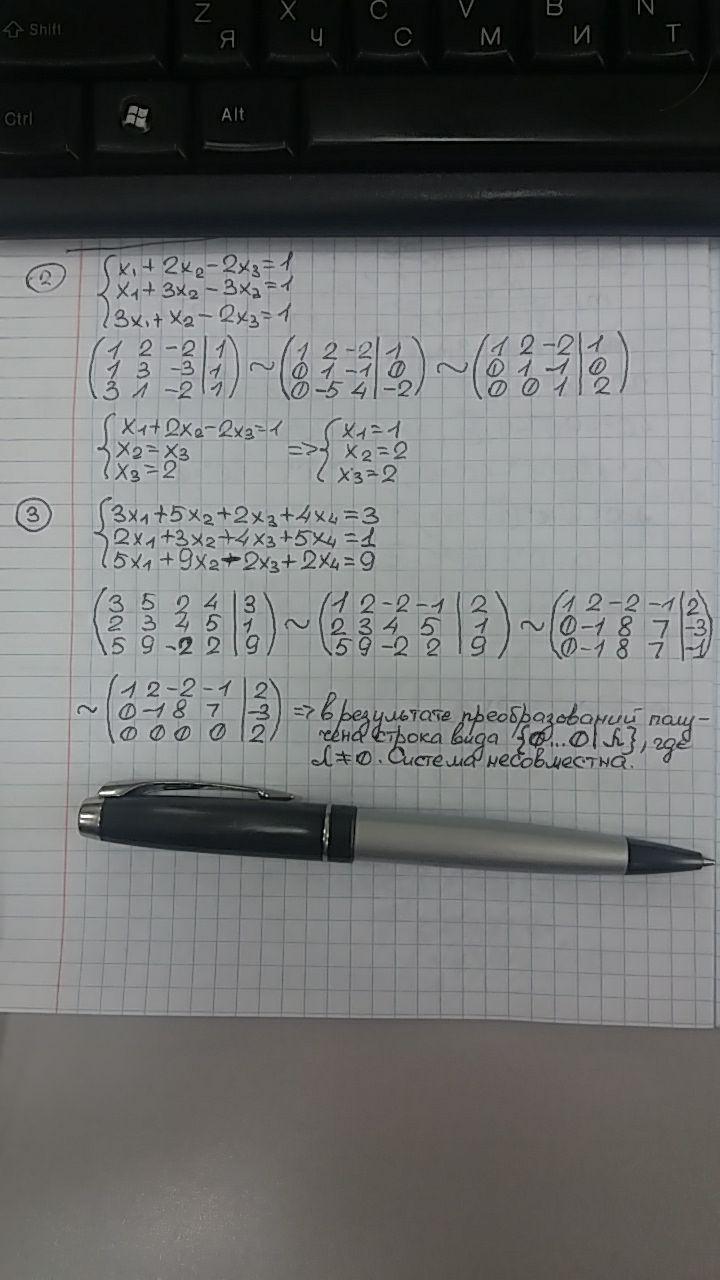 Shift
Z Я
X Ч
C С
V М
B И
N Т
Ctrl
Alt
2
x₁ + 2x₂ - 2x₃ = 1
x₁ + 3x₂ - 3x₃ = 1
3x₁ + x₂ - 2x₃ = 1
(1 2 -2 | 1) ~ (1 2 -2 | 1) ~ (1 2 -2 | 1)
(1 3 -3 | 1) (0 1 -1 | 0) (0 1 -1 | 0)
(3 1 -2 | 1) (0 -5 4 | -2) (0 0 1 | 2)
{x₁ + 2x₂ - 2x₃ = 1 => {x₁ = 1
x₂ = x₃ x₂ = 2
x₃ = 2 x₃ = 2
3
3x₁ + 5x₂ + 2x₃ + 4x₄ = 3
2x₁ + 3x₂ + 4x₃ + 5x₄ = 1
5x₁ + 9x₂ - 2x₃ + 2x₄ = 9
(3 5 2 4 | 3) ~ (1 2 -2 -1 | 2) ~ (1 2 -2 -1 | 2)
(2 3 4 5 | 1) (2 3 4 5 | 1) (0 -1 8 7 | -3)
(5 9 -2 2 | 9) (5 9 -2 2 | 9) (0 -1 8 7 | -1)
~ (1 2 -2 -1 | 2)
(0 -1 8 7 | -3) => в результате преобразований полу-
(0 0 0 0 | 2) чена строка вида {0...0 | λ}, где
λ ≠ 0. Система несовместна.